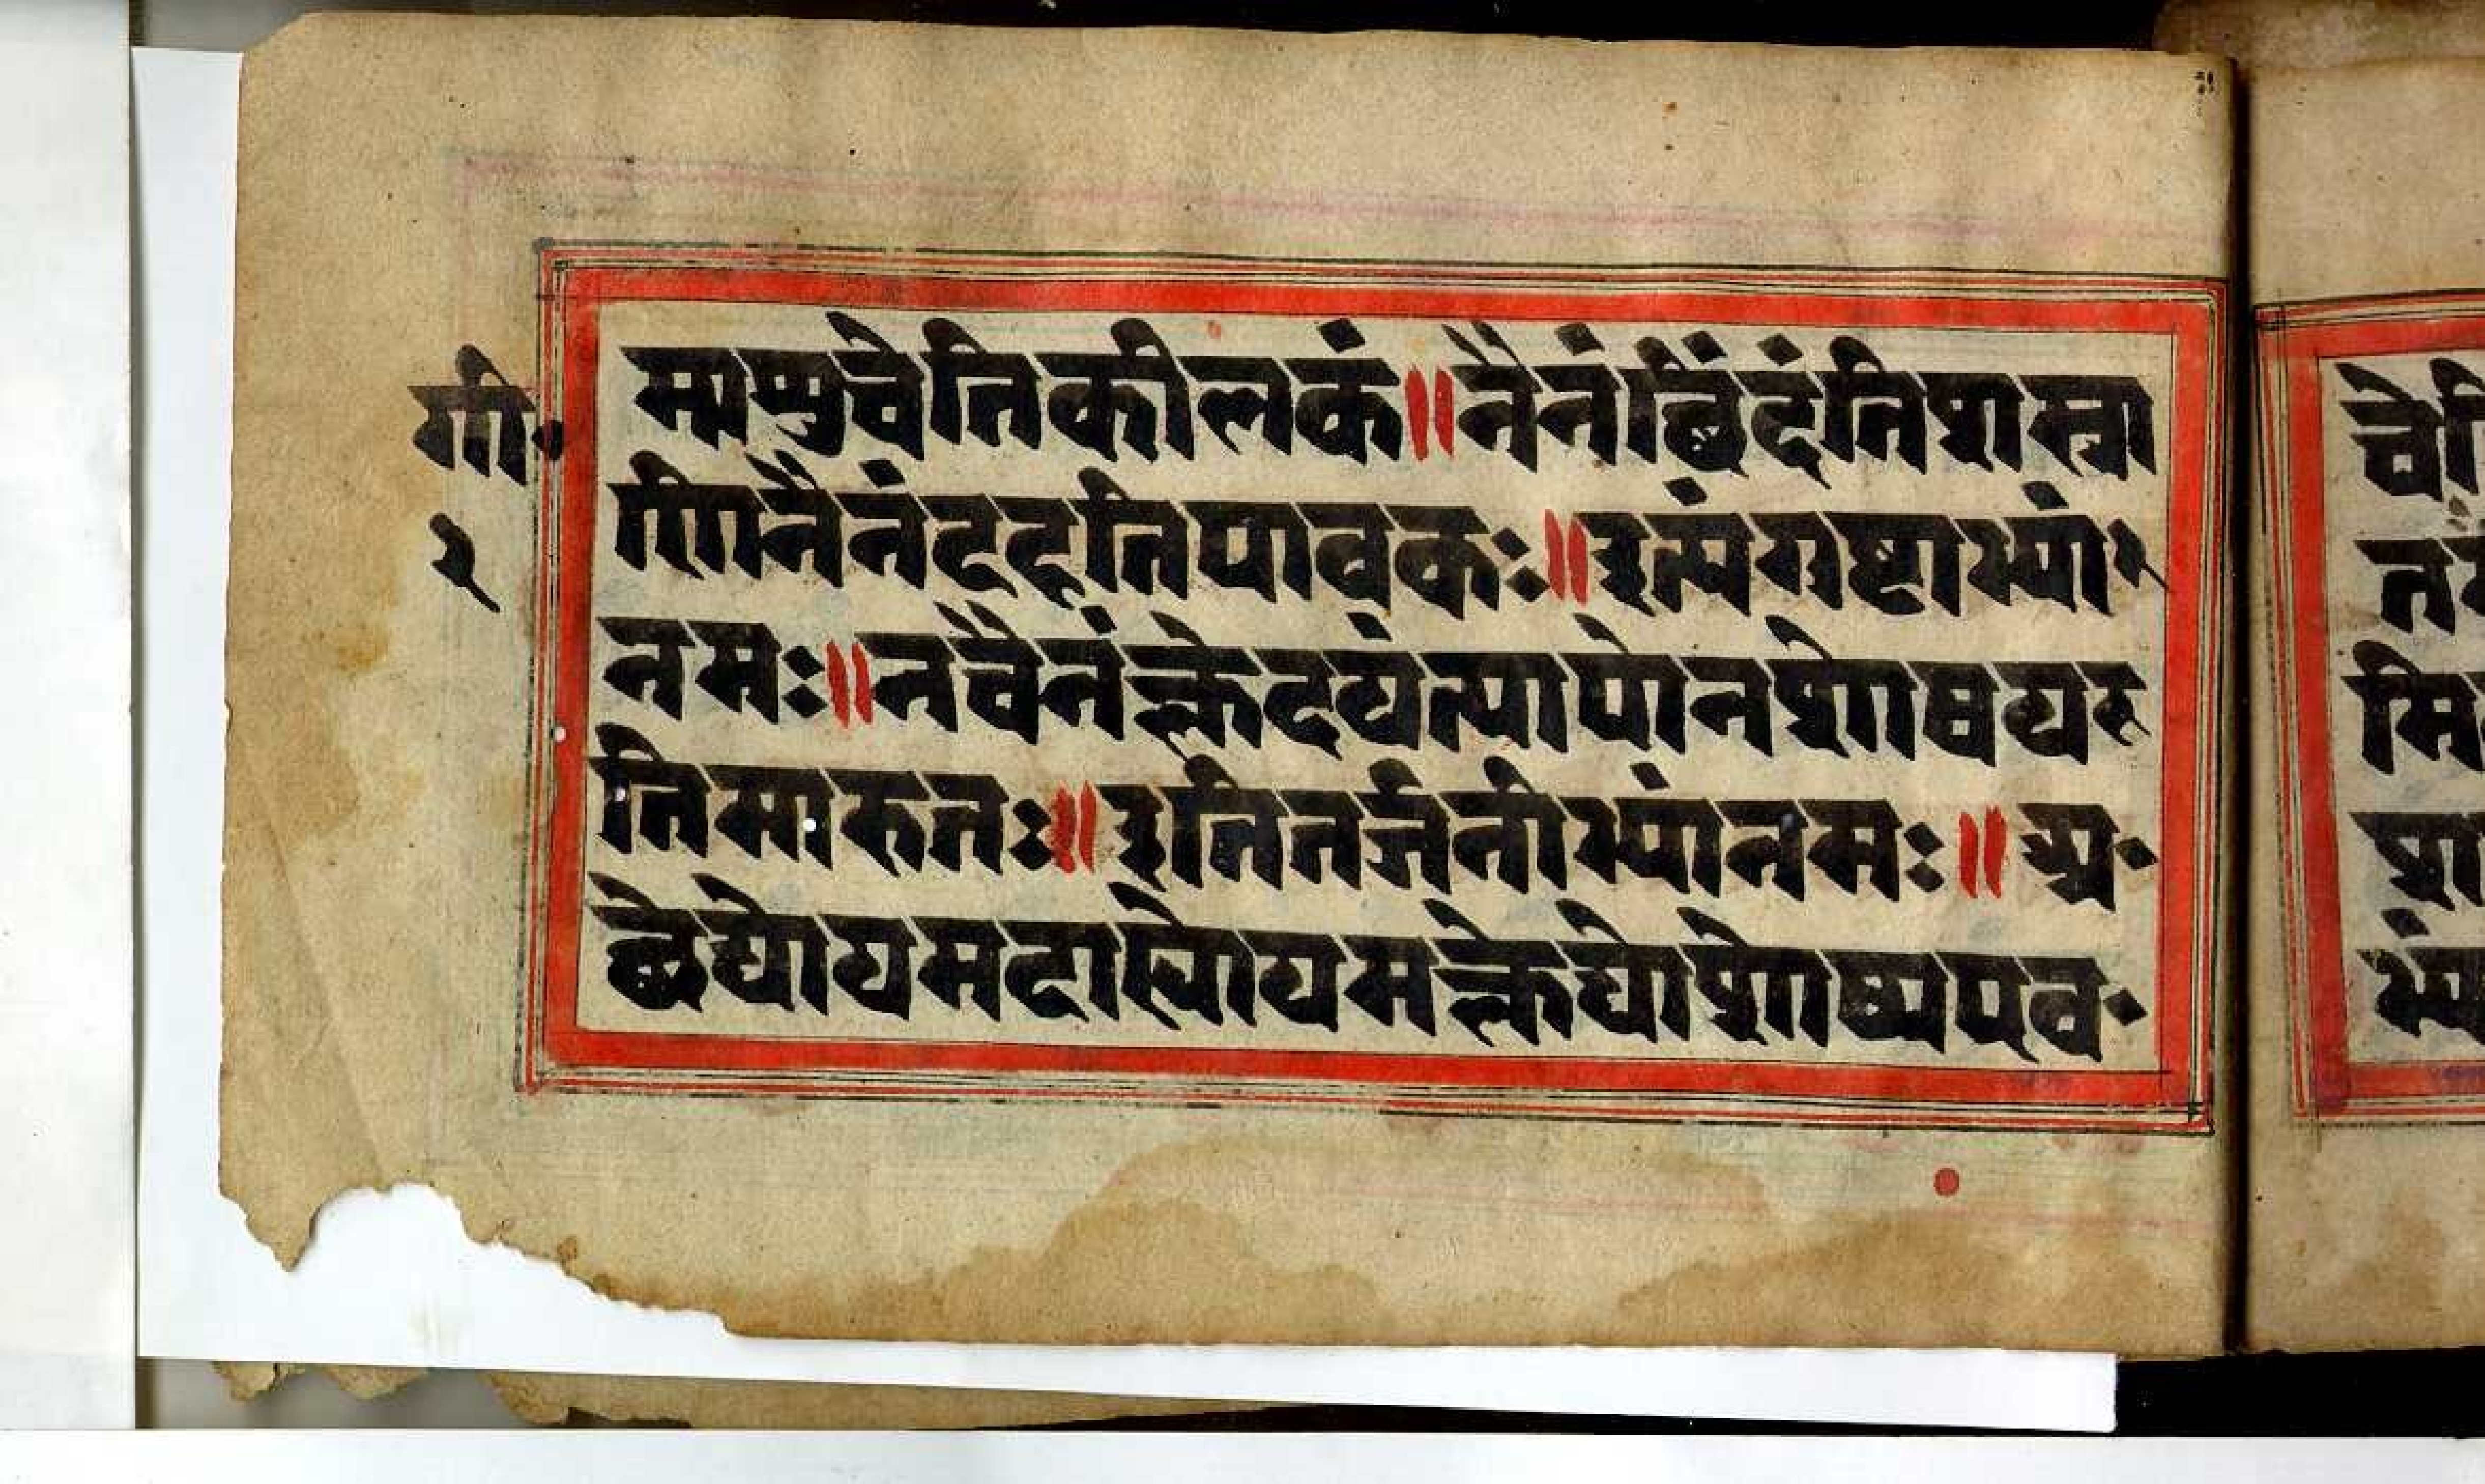 गी॰
२
माशुचेतिकीलकं॥नैनंछिंदंतिशस्त्रा
णिनैनंदहतिपावकः॥इत्यंगुष्टाभ्यां
नमः॥नचैनंक्लेदयंत्यापोनशोषय
तिमारुतः॥इतितर्जनीभ्यांनमः॥अ
छेद्योयमदाह्योयमक्लेद्योशोष्यएव